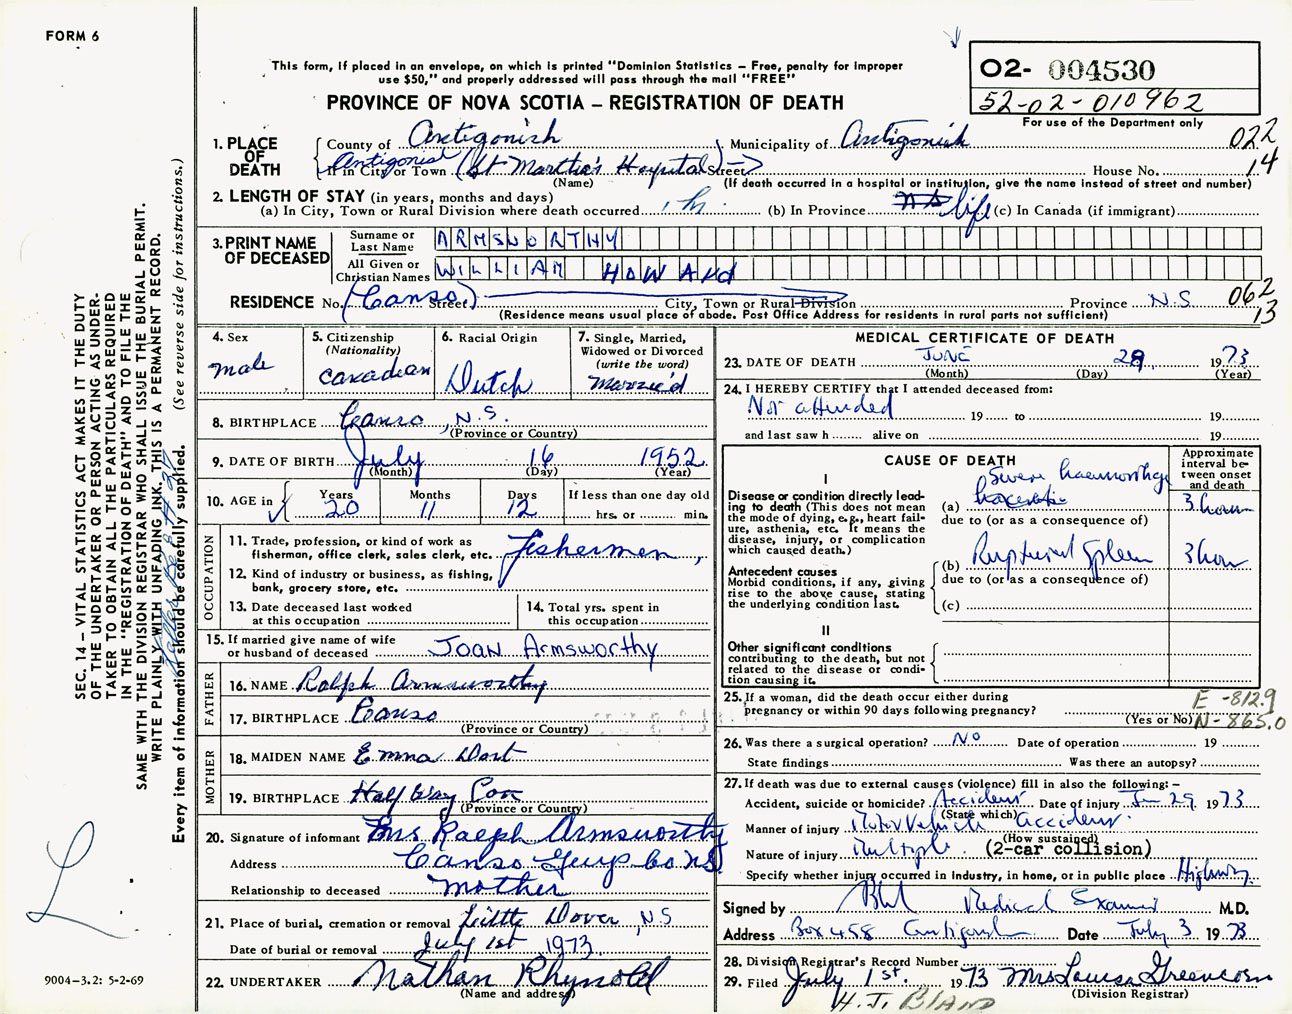 FORM 6
This form, if placed in an envelope, on which is printed "Dominion Statistics – Free, penalty for improper
use $50," and properly addressed will pass through the mail "FREE"
PROVINCE OF NOVA SCOTIA – REGISTRATION OF DEATH
O2- 004530
52-02-010962
For use of the Department only
022
14
1. PLACE OF DEATH
County of Antigonish Municipality of Antigonish
If in City or Town Antigonish (St Martha's Hospital) Street House No.
(Name) (If death occurred in a hospital or institution, give the name instead of street and number)
2. LENGTH OF STAY (in years, months and days)
(a) In City, Town or Rural Division where death occurred 1 h (b) In Province life (c) In Canada (if immigrant)
3. PRINT NAME OF DECEASED
Surname or Last Name ARMSWORTHY
All Given or Christian Names WILLIAM HOWARD
RESIDENCE No. (Canso) Street City, Town or Rural Division Province N.S 062
13
(Residence means usual place of abode. Post Office Address for residents in rural parts not sufficient)
4. Sex
male
5. Citizenship
(Nationality)
Canadian
6. Racial Origin
Dutch
7. Single, Married,
Widowed or Divorced
(write the word)
Married
8. BIRTHPLACE Canso, N.S.
(Province or Country)
9. DATE OF BIRTH July 16 1952
(Month) (Day) (Year)
10. AGE in
Years Months Days If less than one day old
20 11 12 hrs. or min.
OCCUPATION
11. Trade, profession, or kind of work as
fisherman, office clerk, sales clerk, etc. fishermen,
12. Kind of industry or business, as fishing,
bank, grocery store, etc.
13. Date deceased last worked
at this occupation
14. Total yrs. spent in
this occupation
15. If married give name of wife
or husband of deceased Joan Armsworthy
FATHER
16. NAME Ralph Armsworthy
17. BIRTHPLACE Canso
(Province or Country)
MOTHER
18. MAIDEN NAME Emma Dort
19. BIRTHPLACE Half Way Cove
(Province or Country)
20. Signature of informant Mrs. Ralph Armsworthy
Address Canso Guys Co NS
Relationship to deceased mother
21. Place of burial, cremation or removal Little Dover, N.S
Date of burial or removal July 1st 1973
22. UNDERTAKER Nathan Rhynold
(Name and address)
MEDICAL CERTIFICATE OF DEATH
23. DATE OF DEATH JUNE 29 1973
(Month) (Day) (Year)
24. I HEREBY CERTIFY that I attended deceased from:
Not attended 19 to 19
and last saw h alive on 19
CAUSE OF DEATH
Approximate
interval be-
tween onset
and death
I
Disease or condition directly lead-
ing to death (This does not
mean the mode of dying, e.g., heart fail-
ure, asthenia, etc. It means the
disease, injury, or complication
which caused death.)
(a) Severe haemorrhage 3 hours
due to (or as a consequence of)
(b) Ruptured Spleen 3 hours
due to (or as a consequence of)
(c)
Antecedent causes
Morbid conditions, if any, giving
rise to the above cause, stating
the underlying condition last.
II
Other significant conditions
contributing to the death, but not
related to the disease or condi-
tion causing it.
25. If a woman, did the death occur either during
pregnancy or within 90 days following pregnancy?
(Yes or No)
E-812.9
N-865.0
26. Was there a surgical operation? No Date of operation 19
State findings Was there an autopsy?
27. If death was due to external causes (violence) fill in also the following: –
Accident, suicide or homicide? Accident Date of injury Jun 29 1973
(State which)
Manner of injury Motor Vehicle accident
(How sustained)
Nature of injury Multiple. (2-car collision)
Specify whether injury occurred in industry, in home, or in public place Highway
Signed by Medical Examiner M.D.
Address Box 458 Antigonish Date July 3 1973
28. Division Registrar's Record Number
29. Filed July 1st. 1973 Mrs Louise Greencorn
(Division Registrar)
H.J. BLAND
SEC. 14 – VITAL STATISTICS ACT MAKES IT THE DUTY
OF THE UNDERTAKER OR PERSON ACTING AS UNDER-
TAKER TO OBTAIN ALL THE PARTICULARS REQUIRED
IN THE "REGISTRATION OF DEATH" AND TO FILE THE
SAME WITH THE DIVISION REGISTRAR WHO SHALL ISSUE THE BURIAL PERMIT.
WRITE PLAINLY WITH UNFADING INK. THIS IS A PERMANENT RECORD.
Every item of information should be carefully supplied. (See reverse side for instructions.)
9004–3.2: 5-2-69